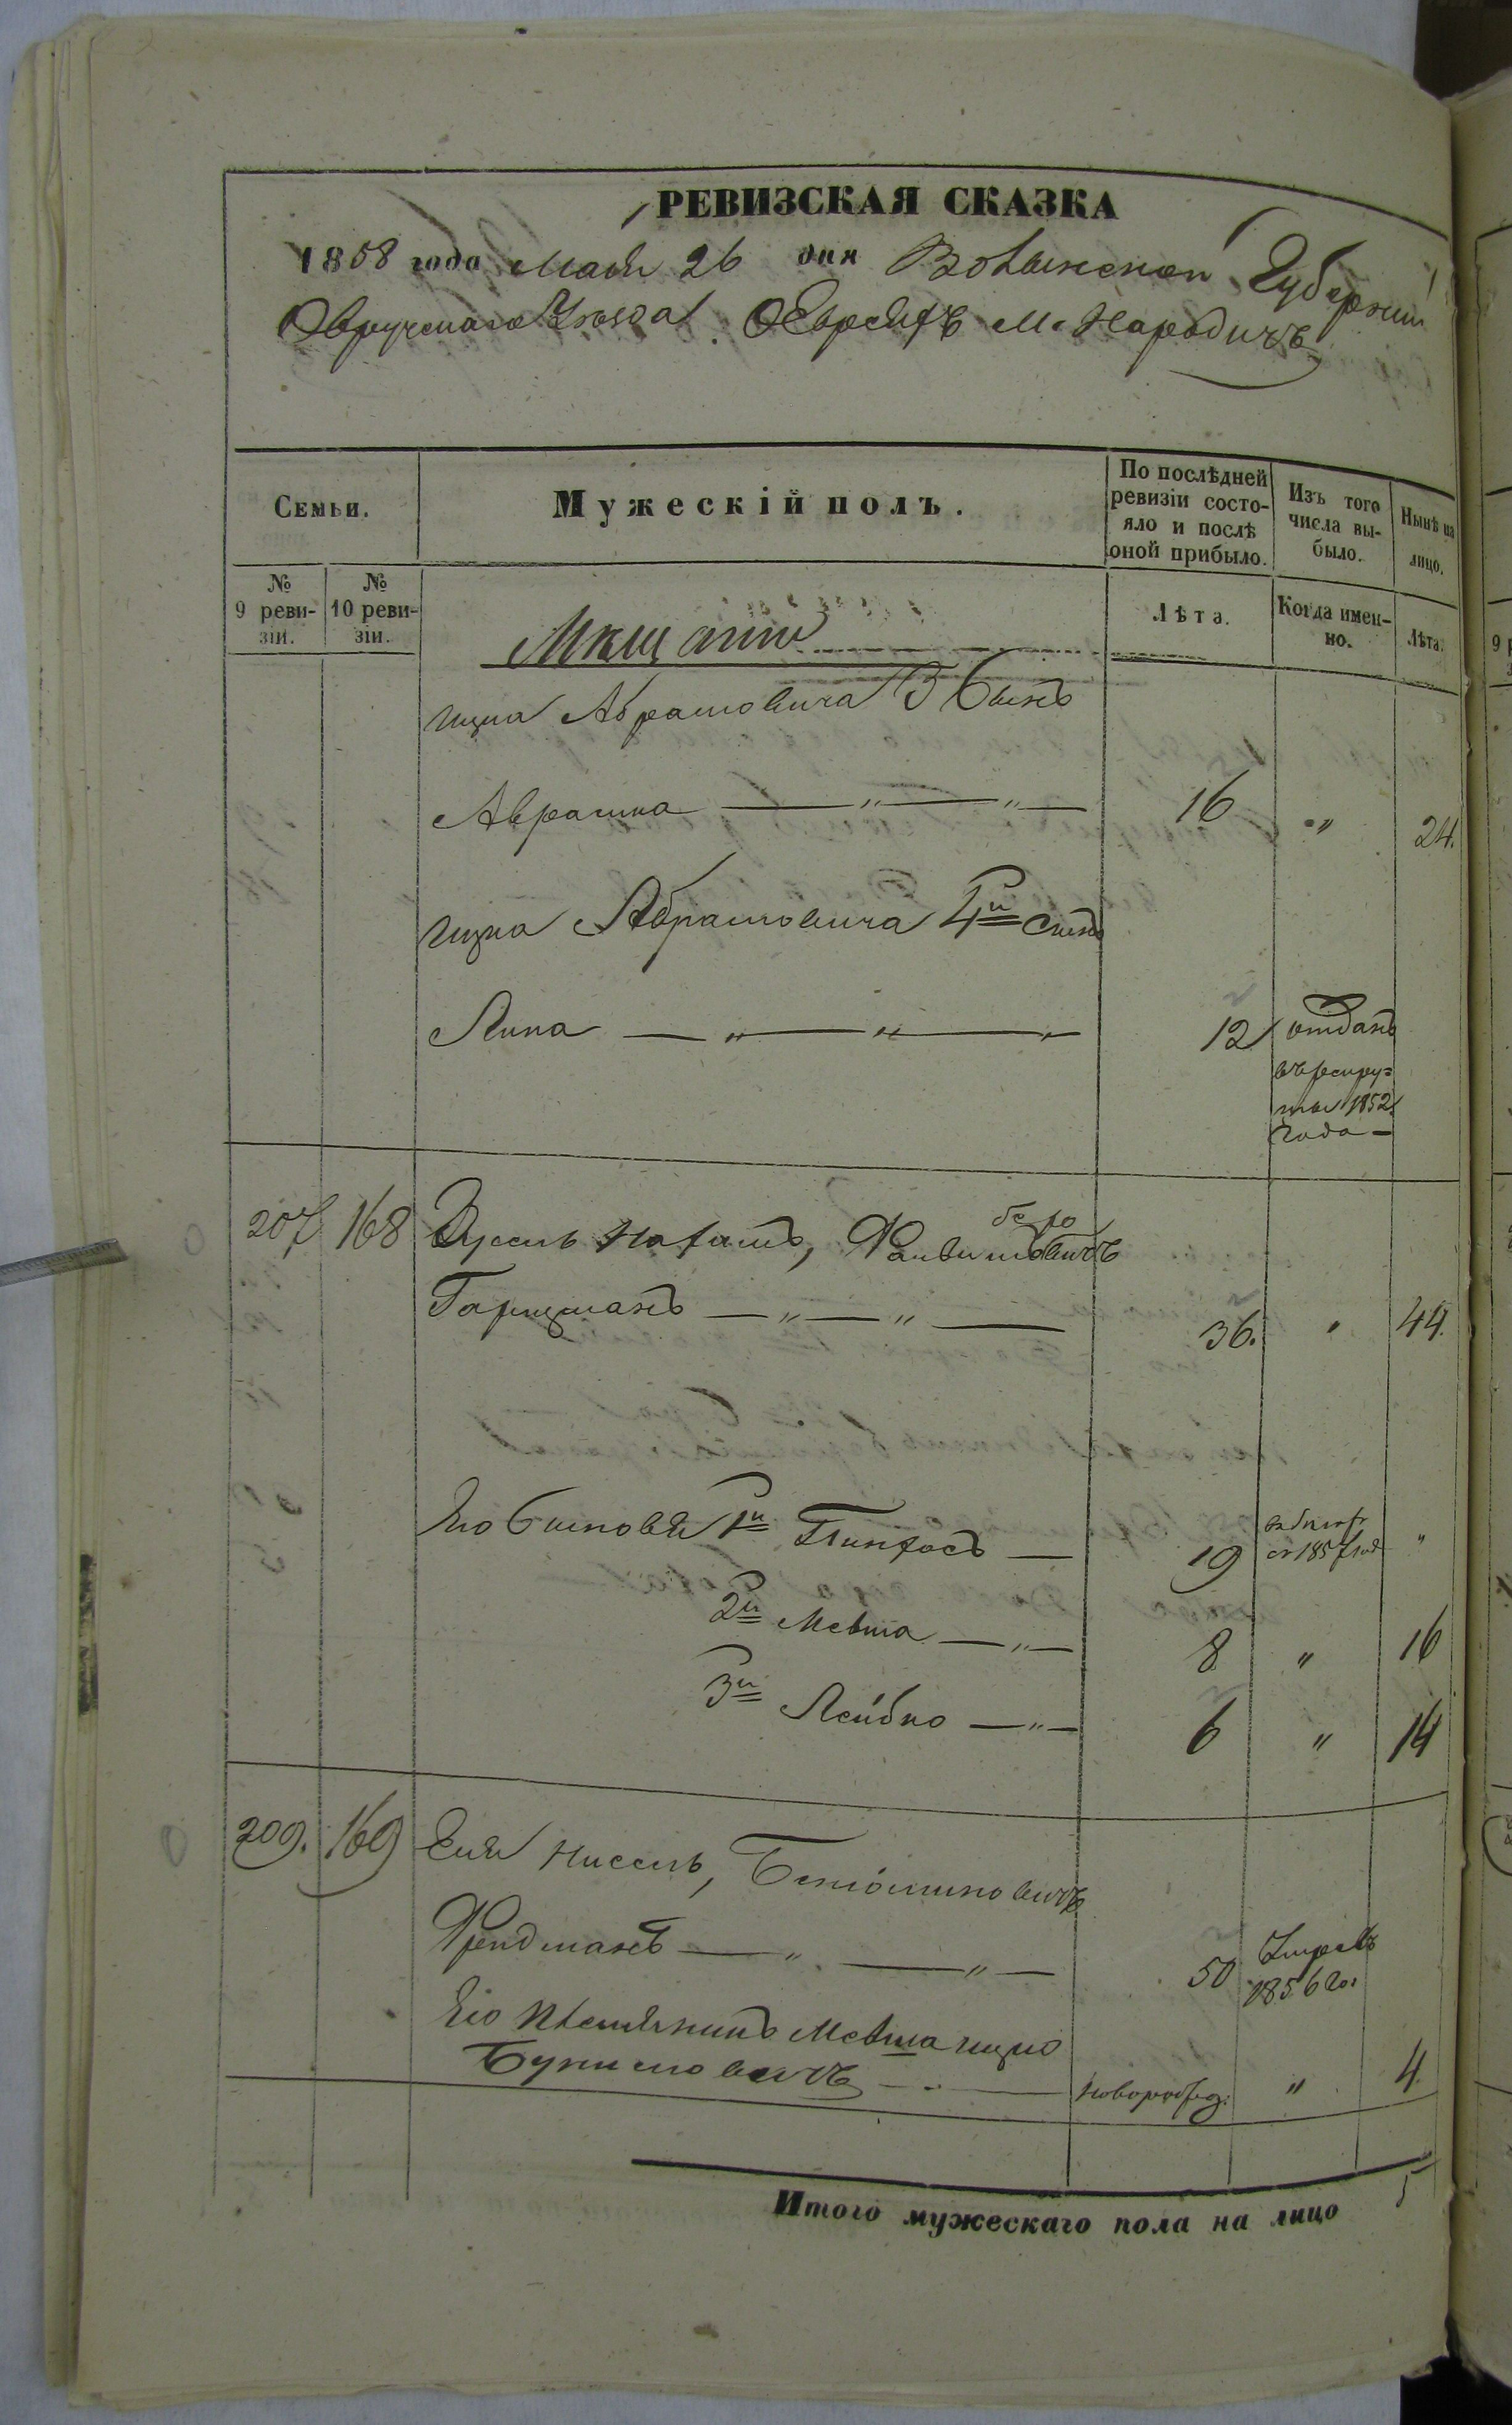 РЕВИЗСКАЯ СКАЗКА
1858 года Мая 26 дня Волынской Губернии
Овручскаго Уезда. О Евреяхъ М. Народичъ
Семьи.
Мужескій полъ.
По послѣдней ревизіи состояло и послѣ оной прибыло.
Изъ того числа выбыло.
Нынѣ на лицо.
№ 9 ревизіи.
№ 10 ревизіи.
Лѣта.
Когда именно.
Лѣта.
Мѣщане
Ицка Абрамовича 3 Сынъ
Аврашка — „ — „ — 16 „ 24.
Ицка Абрамовича 4й Сынъ
12 отданъ
въ рекру=
ты 1852
года —
207 168
— „ — „ — 36. „ 44.
Его Сыновья 1й Пинхасъ — 19
1857 год „
2й Мевша — „ — 8 „ 16
3й Лейбко — „ — 6 „ 14
209. 169 Нисель,
Фридманъ — „ — „ — 50 Умеръ
1856 го.
Его Племянникъ Мевша Ицко
— новорожд. „ 4.
Итого мужескаго пола на лицо 5